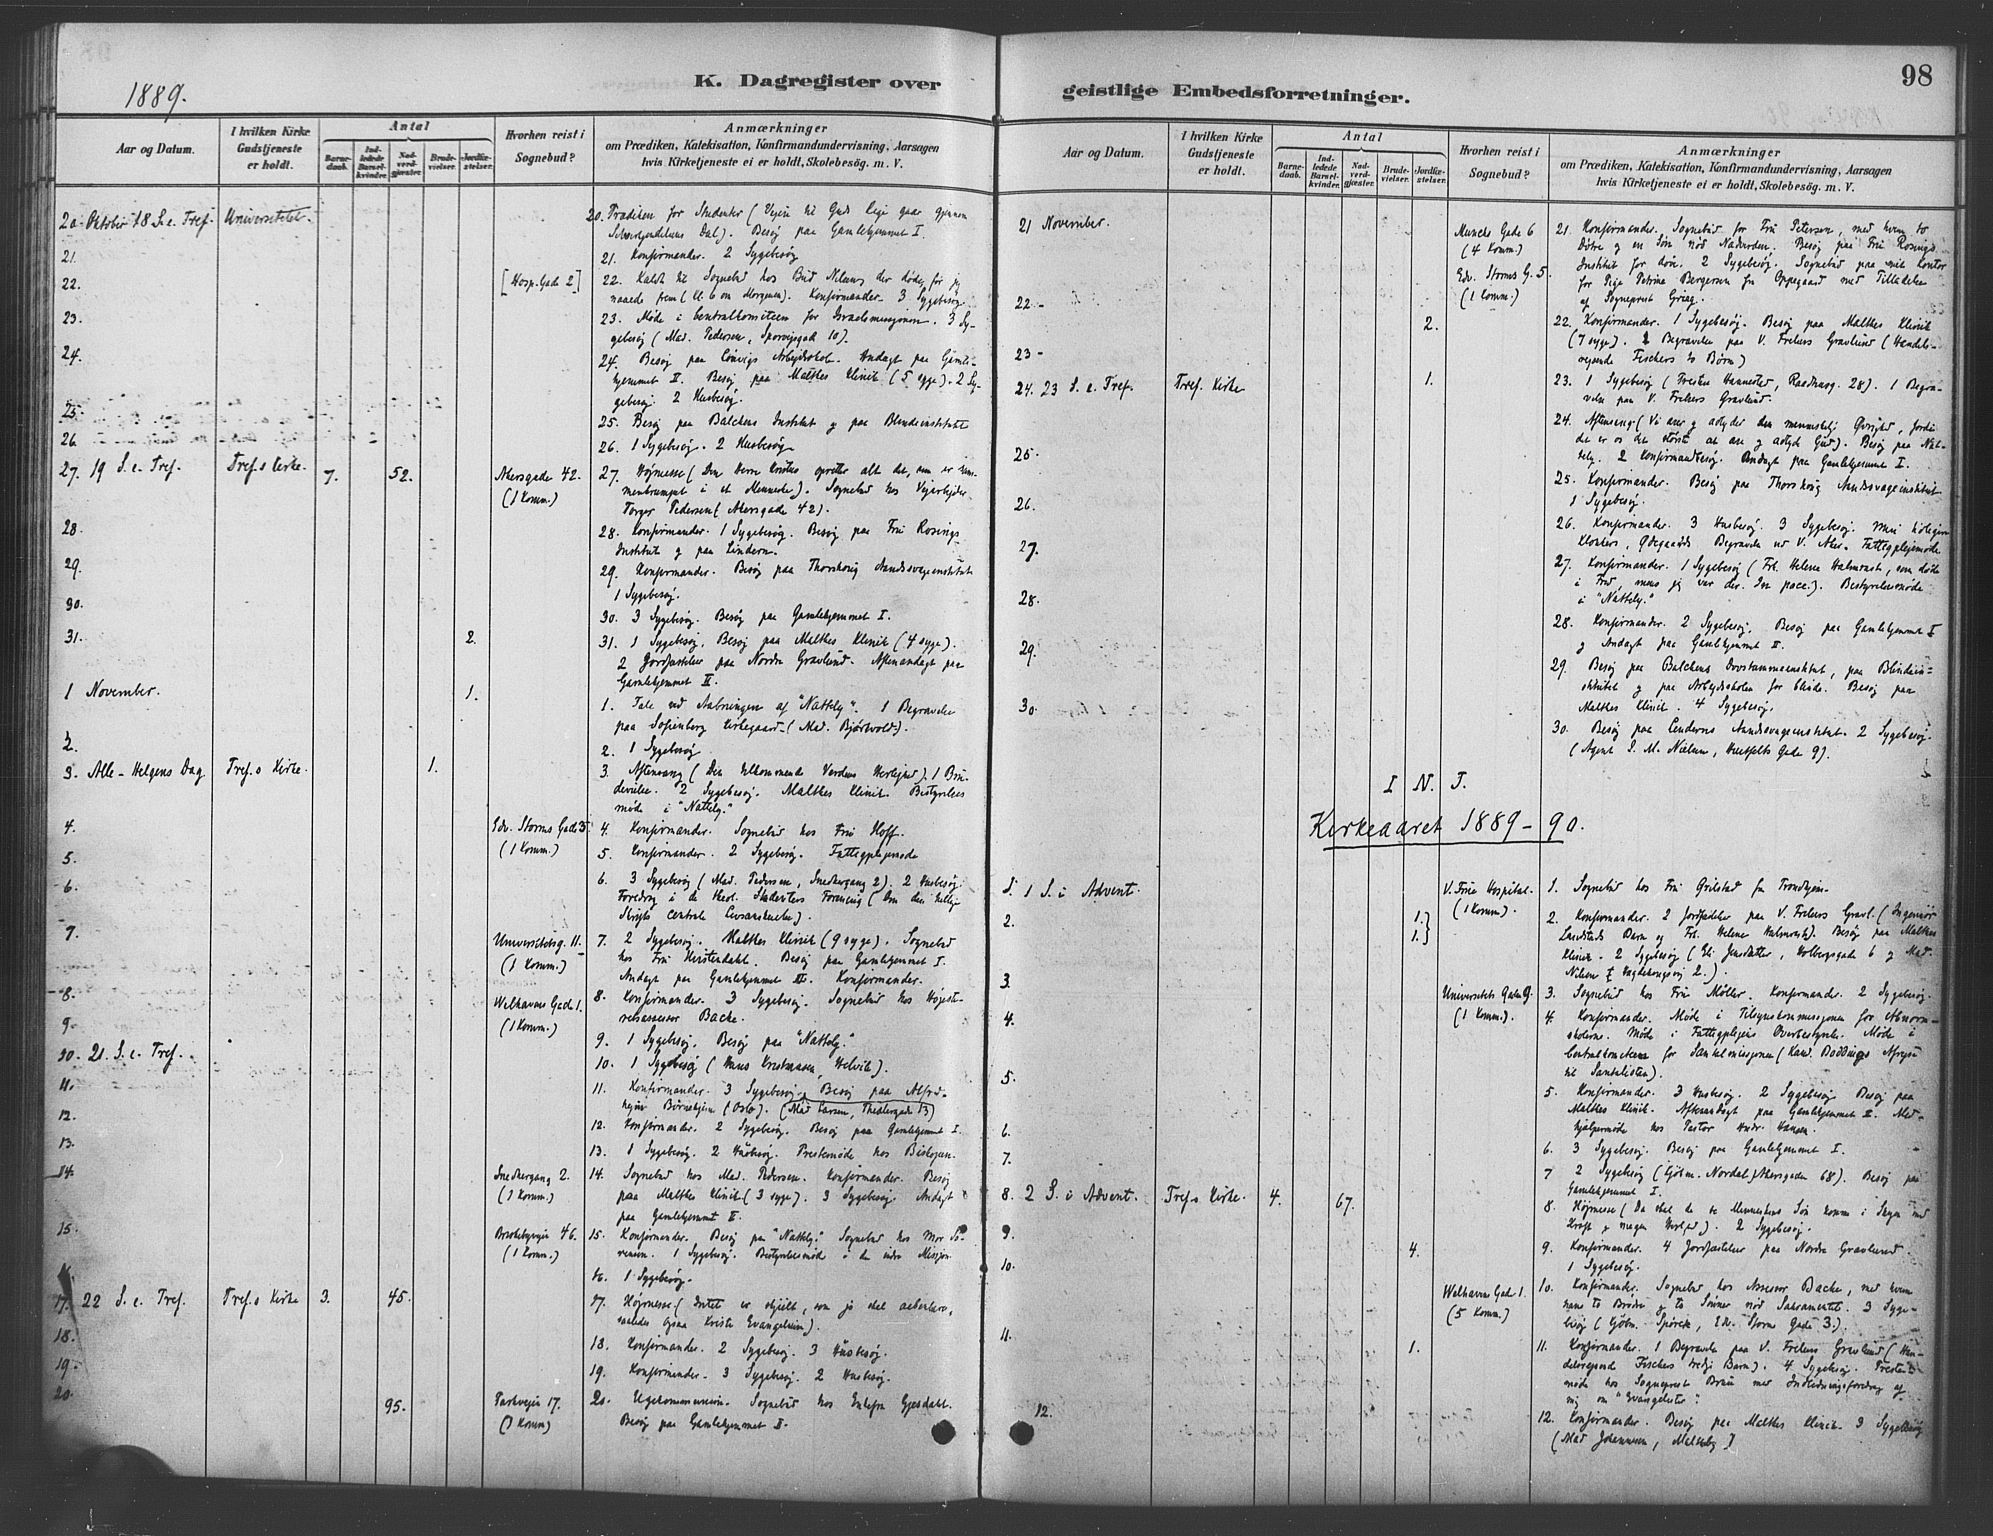 98
1889.
K. Dagregister over
geistlige Embedsforretninger.
Aar og Datum.
I hvilken Kirke
Gudstjeneste
er holdt.
Antal
Barne-
daab.
Ind-
ledede
Barsel-
kvinder.
Nad-
verd-
gjæster.
Brude-
vielser.
Jordfæ-
stelser.
Hvorhen reist i
Sognebud?
Anmærkninger
om Prædiken, Katekisation, Konfirmandundervisning, Aarsagen
hvis Kirketjeneste ei er holdt, Skolebesøg. m. V.
20 Oktober 18 S. e. Tref. Universitetet.
20. Prædiken for Studenter (Vejen til Guds Rige gaar gjennem
Dal). Besøg paa Gamlehjemmet I.
21.
21. Konfirmander. 2 Sygebesøg
22. [Hosp. Gade 2]
22. Kaldt til Sognebud hos Bud Nilsens, der døde, før jeg
naaede frem (Kl. 6 om Morgenen). Konfirmander. 3 Sygebesøg.
23.
23. Møde i Centralkomiteen for Israelsmissjonen. 3 Sy-
gebesøg (Mad. Pedersen, 10).
24.
24. Besøg paa Arbejdsskole. Andagt paa Gamle-
hjemmet II. Besøg paa Malthes Klinik (5 syge). 2 Sy-
gebesøg. 2 Husbesøg.
25.
25. Besøg paa Balchens Institut og paa Blindeinstitutet
26.
26. 1 Sygebesøg. 2 Husbesøg
27. 19 S. e. Tref. Tref.s Kirke. 7. 52. Akersgade 42.
(1 Komm.)
27. Højmesse (Den Herre Kristus opretter alt det, som er
i et Menneske). Sognebud hos Vejarbejder
Torger Pedersen (Akersgade 42).
28.
28. Konfirmander. 1 Sygebesøg. Besøg paa Frü Rosings
Institut og paa Lindern.
29.
29. Konfirmander. Besøg paa Thorshaug Aandssvageinstitut
1 Sygebesøg.
30.
30. 3 Sygebesøg. Besøg paa Gamlehjemmet I.
31. 2.
31. 1 Sygebesøg. Besøg paa Malthes Klinik (4 syge).
2 Jordfæstelser paa Nordre Gravlund. Aftenandagt paa
Gamlehjemmet II.
1 November. 1.
1. Tale ved Aabningen af "Nattely". 1 Begravelse
paa Sofienberg Kirkegaard (Mad. Bjørvold).
2.
2. 1 Sygebesøg
3. Alle-Helgens Dag Tref.s Kirke. 1.
3. Aftensang (Den tilkommende Verdens Herlighed). 1 Bru-
devielse. 2 Sygebesøg. Malthes Klinik. Bestyrelses
møde i "Nattely."
4. Edv. Storms Gade 5.
(1 Komm.)
4. Konfirmander. Sognebud hos Frü Hoff.
5.
5. Konfirmander. 2 Sygebesøg. Fattigplejemøde
6.
6. 3 Sygebesøg (Mad. Pedersen, Snedkergang 2). 2 Husbesøg
Foredrag i de theol. Studenters Forening (Om den hellige
Skrifts centrale ).
7. Universitetsg. 11.
(1 Komm.)
7. 2 Sygebesøg. Malthes Klinik (9 syge). Sognebud
hos Frü Kirstendahl. Besøg paa Gamlehjemmet I.
Andagt paa Gamlehjemmet II. Konfirmander.
8. Welhavens Gade 1.
(1 Komm.)
8. Konfirmander. 3 Sygebesøg. Sognebud hos Højeste-
retsassessor Backe.
9.
9. 1 Sygebesøg. Besøg paa "Nattely."
10. 21. S. e. Tref.
10. 1 Sygebesøg (Hans Kristiansen, Helvik).
11.
11. Konfirmander. 3 Sygebesøg. Besøg paa
Børnehjem (Oslo). (Mad Larsen, Theilergade 13)
12.
12. Konfirmander. 2 Sygebesøg. Besøg paa Gamlehjemmet I.
13.
13. 1 Sygebesøg. 2 Husbesøg. Prestemøde hos Biskopen.
14. Snedkergang 2.
(1 Komm.)
14. Sognebud hos Mad. Pedersen. Konfirmander. Besøg
paa Malthes Klinik (3 syge). 3 Sygebesøg. Andagt
paa Gamlehjemmet II.
15. 46.
(1 Komm.)
15. Konfirmander. Besøg paa "Nattely." Sognebud hos Mor Sø-
rensen. 1 Sygebesøg. Bestyrelsesmøde i den indre Missjon
16.
16. 1 Sygebesøg.
17. 22 S. e. Tref. Tref.s Kirke 3. 45.
17. Højmesse (Intet er skjult, som jo skal aabenbares,
saaledes ogsaa Kristi Evangelium).
18.
18. Konfirmander. 2 Sygebesøg. 3 Husbesøg.
19.
19. Konfirmander. 3 Sygebesøg. 2 Husbesøg.
20. 95. Parkvejen 17.
(1 Komm)
20. Ugekommunion. Sognebud hos Enkefru Gjesdahl.
Besøg paa Gamlehjemmet II.
Aar og Datum.
I hvilken Kirke
Gudstjeneste
er holdt.
Antal
Barne-
daab.
Ind-
ledede
Barsel-
kvinder.
Nad-
verd-
gjæster.
Brude-
vielser.
Jordfæ-
stelser.
Hvorhen reist i
Sognebud?
Anmærkninger
om Prædiken, Katekisation, Konfirmandundervisning, Aarsagen
hvis Kirketjeneste ei er holdt, Skolebesøg. m. V.
21 November. Munchs Gade 6
(4 Komm.)
Edv. Storms G. 5.
(1 Komm.)
21. Konfirmander. Sognebud for Frü Petersen, med hvem to
Døtre og en Søn nød Nadverden. Besøg paa Frü Rosings
Institut for døve. 2 Sygebesøg. Sognebud paa mit Kontor
for Pige Petrine Bergersen fra Oppegaard med Tilladelse
af Sogneprest Grieg.
22 - 2.
22. Konfirmander. 1 Sygebesøg. Besøg paa Malthes Klinik
(7 syge). 2 Begravelser paa V. Frelsers Gravlund (Handels-
rejsende Fischers to Børn)
23 - 1.
23. 1 Sygebesøg (Presten Hannestad, Raadhusg. 28). 1 Begra-
velse paa V. Frelsers Gravlund.
24. 23 S. e. Tref. Tref. Kirke
24. Aftensang (Vi ærer og adlyder den menneskelige Øvrighed, fordi
det er os det største at ære og adlyde Gud). Besøg paa Nat-
tely. 2 Konfirmandbesøg. Andagt paa Gamlehjemmet I.
25.
25. Konfirmander. Besøg paa Thorshaug Aandssvageinstitut
1 Sygebesøg.
26.
26. Konfirmander. 3 Husbesøg. 3 Sygebesøg.
Klokkers, Ødegaards Begravelse ved V. Aker. Fattigplejemøde
27.
27. Konfirmander. 1 Sygebesøg (Frk. Helene Halmrast, som døde
i Fred, mens jeg var der. In pace.). Bestyrelsesmøde
i "Nattely."
28.
28. Konfirmander. 2 Sygebesøg. Besøg paa Gamlehjemmet I
og Andagt paa Gamlehjemmet II.
29.
29. Besøg paa Balchens Døvstummeinstitut, paa Blindein-
stitutet og paa Arbejdsskolen for blinde. Besøg paa
Malthes Klinik. 4 Sygebesøg.
30.
30. Besøg paa Linderns Aandssvageinstitut. 2 Sygebesøg.
(Agent S. M. Nielsen, Huitfelts Gade 9).
I N. J.
Kirkeaaret 1889-90.
1. 1 S. i Advent. V. Frue Hospital.
(1 Komm.)
1. Sognebud hos Frü Grilstad fra Trondhjem.
2. 1.}
1.}
2. Konfirmander. 2 Jordfæstelser paa V. Frelsers Gravl. (Ingeniør
Landstads Barn og Frk. Helene Halmrast). Besøg paa Malthes
Klinik. 2 Sygebesøg (Eli Jensdatter, Holbergsgade 6 og Mad.
Nilsen 2.).
3. Universitets Gaden 9.
(1 Komm.)
3. Sognebud hos Frü Møller. Konfirmander. 2 Sygebesøg.
4.
4. Konfirmander. Møde i Tilsynskommissjonen for Abnorm-
skolerne. Møde i Fattigplejens Overbestyrelse. Møde i
Centralkomiteen for Santalmissjonen (Kand. Boddings Afrejse
til Santalistan).
5.
5. Konfirmander. 3 Husbesøg. 2 Sygebesøg. Besøg paa
Malthes Klinik. Aftenandagt paa Gamlehjemmet II. Med-
hjælpermøde hos Pastor Andr. Hansen.
6.
6. 3 Sygebesøg. Besøg paa Gamlehjemmet I.
7.
7 2 Sygebesøg (Gjöbm. Nordal, Akersgaden 68). Besøg paa
Gamlehjemmet I.
8. 2 S. i Advent. Tref.s Kirke. 4. 67.
8. Højmesse (Da skal de se Menneskens Søn komme i Skyen med
Kraft og megen Herlighed). 2 Sygebesøg.
9. 4.
9. Konfirmander. 4 Jordfæstelser paa Nordre Gravlund.
1 Sygebesøg.
10. Welhavens Gade 1.
(5 Komm.)
10. Konfirmander. Sognebud hos Assessor Backe, med hvem
hans to Brødre og to Sønner nød Sakramentet. 3 Syge-
besøg (Gjöbm. Spörck, Edv. Storms Gade 3.).
11. 1.
11. Konfirmander. 1 Begravelse paa V. Frelsers Gravlund (Han-
delsrejsende Fischers tredje Barn). 4 Sygebesøg. Preste-
møde hos Sogneprest Brun med Indledningsforedrag af
mig om "Evangelister".
12.
12. Konfirmander. Besøg paa Malthes Klinik. 3 Sygebesøg
(Mad Johannesen, Malteby)